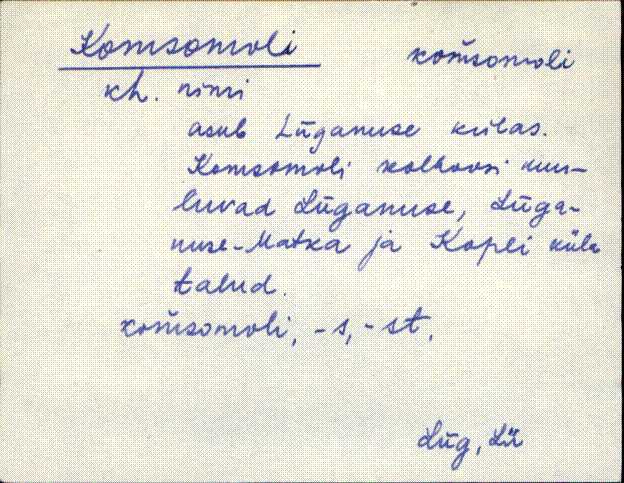 Komsomoli kom̄somoli
kh. nimi
asub Lüganuse külas.
Komsomoli kolhoosi kuu-
luvad Lüganuse, Lüga-
nuse-Matka ja Kopli küla
talud.
kom̄somoli, -s, -st.
Lüg, Lü